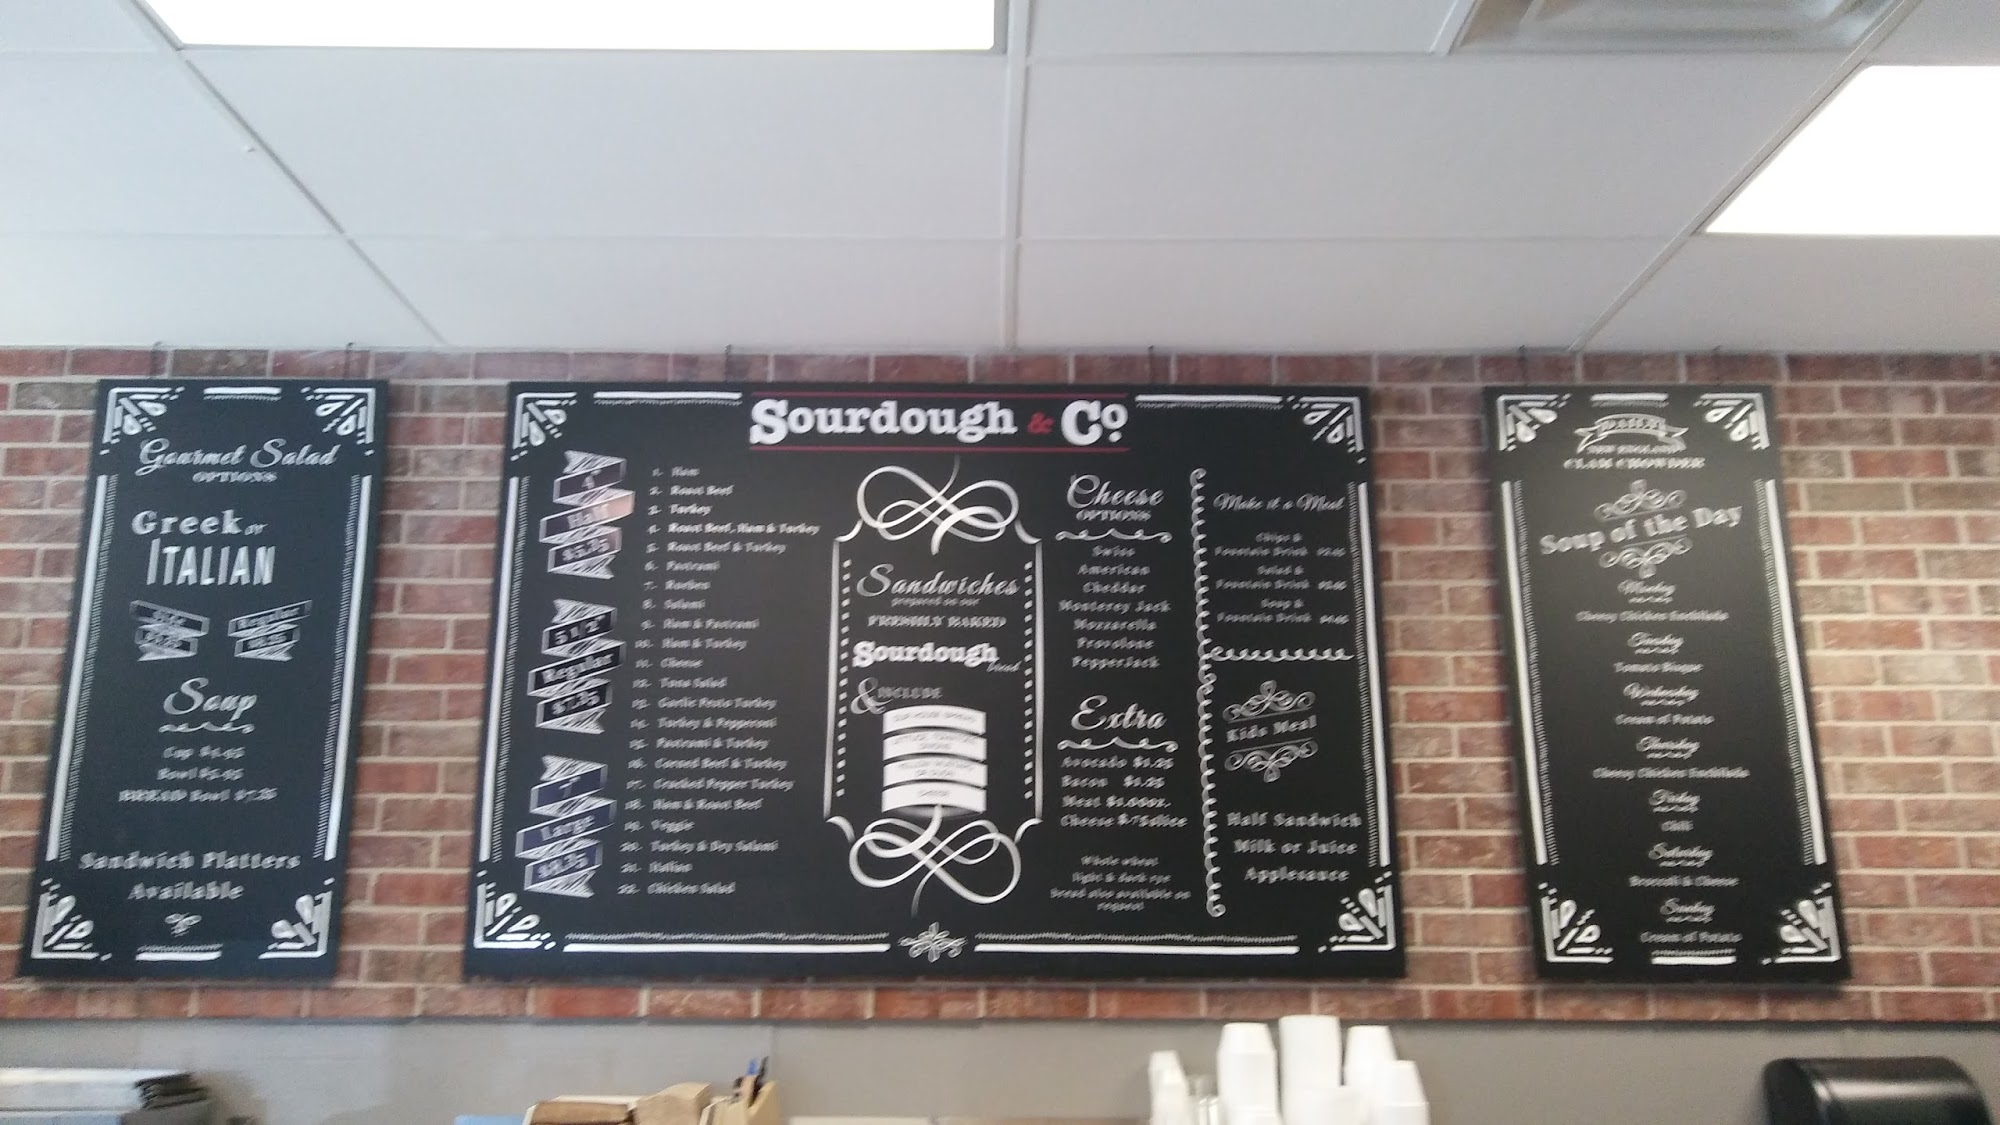 Gourmet Salad
OPTIONS
Greek or
ITALIAN
Regular
Soup
Cup
Bowl
BREAD Bowl $7.25
Sandwich Platters
Available
Sourdough & Co.
4"
Half
$5.75
5 1/2"
Regular
$7.75
7"
Large
1. Ham
2. Roast Beef
3. Turkey
4. Roast Beef, Ham & Turkey
5. Roast Beef & Turkey
6. Pastrami
7. Reuben
8. Salami
9. Ham & Pastrami
10. Ham & Turkey
11. Cheese
12. Tuna Salad
13. Garlic Pesto Turkey
14. Turkey & Pepperoni
15. Pastrami & Turkey
16. Corned Beef & Turkey
17. Cracked Pepper Turkey
18. Ham & Roast Beef
19. Veggie
20. Turkey & Dry Salami
21. Italian
22. Chicken Salad
Sandwiches
prepared on our
FRESHLY BAKED
Sourdough
bread
& INCLUDE
Cheese
OPTIONS
Swiss
American
Cheddar
Monterey Jack
Mozzarella
Provolone
PepperJack
Extra
Avocado $1.25
Bacon $1.25
Meat $1.00oz.
Cheese $.75slice
Whole wheat
light & dark rye
bread also available on
request
Make it a Meal
Chips &
Fountain Drink
Salad &
Fountain Drink
Soup &
Fountain Drink
Kids Meal
Half Sandwich
Milk or Juice
Applesauce
DAILY
NEW ENGLAND
CLAM CHOWDER
Soup of the Day
Monday
Cheesy Chicken Enchilada
Tuesday
Tomato Bisque
Wednesday
Cream of Potato
Thursday
Cheesy Chicken Enchilada
Friday
Chili
Saturday
Broccoli & Cheese
Sunday
Cream of Potato